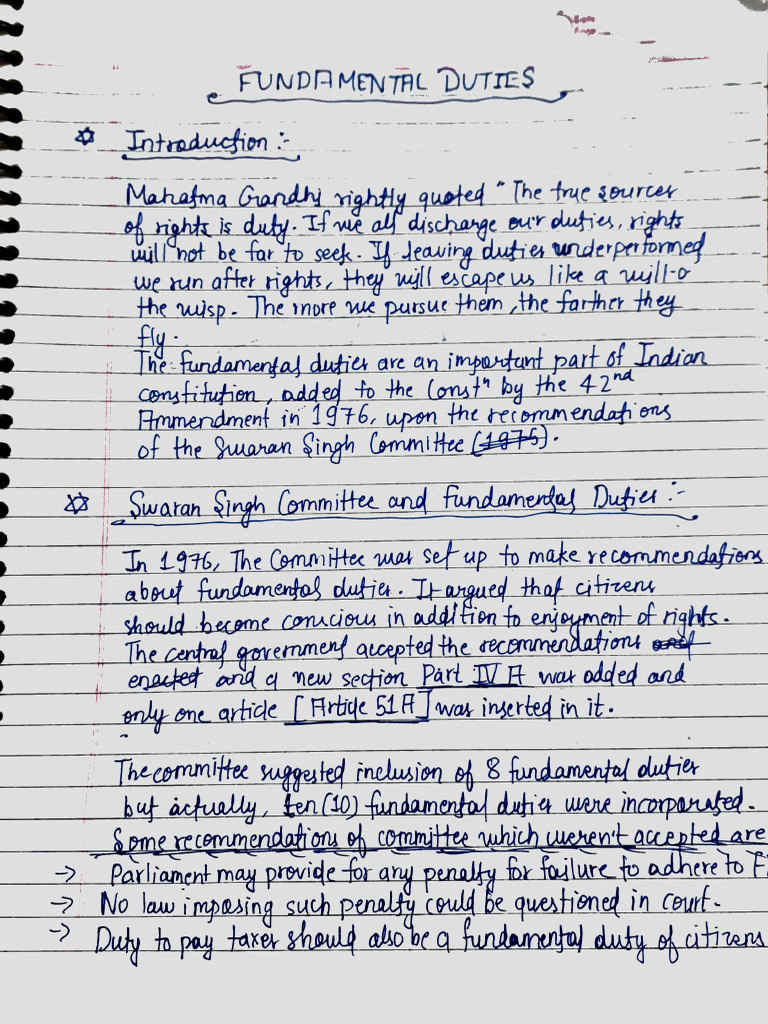 FUNDAMENTAL DUTIES
Introduction :-
Mahatma Gandhi rightly quoted "The true sources
of rights is duty. If we all discharge our duties, rights
will not be far to seek. If leaving duties underperformed
we run after rights, they will escape us like a will-o
the wisp. The more we pursue them, the farther they
fly.
The fundamental duties are an important part of Indian
constitution, added to the Constn by the 42nd
Ammendment in 1976, upon the recommendations
of the Swaran Singh Committee (1975).
Swaran Singh Committee and Fundamental Duties :-
In 1976, The Committee was set up to make recommendations
about fundamental duties. It argued that citizens
should become conscious in addition to enjoyment of rights.
The central government accepted the recommendations and
enacted and a new section Part IV A was added and
only one article [Article 51A] was inserted in it.
The committee suggested inclusion of 8 fundamental duties
but actually, ten (10) fundamental duties were incorporated.
Some recommendations of committee which weren't accepted are
→ Parliament may provide for any penalty for failure to adhere to F
→ No law imposing such penalty could be questioned in court.
→ Duty to pay taxes should also be a fundamental duty of citizens